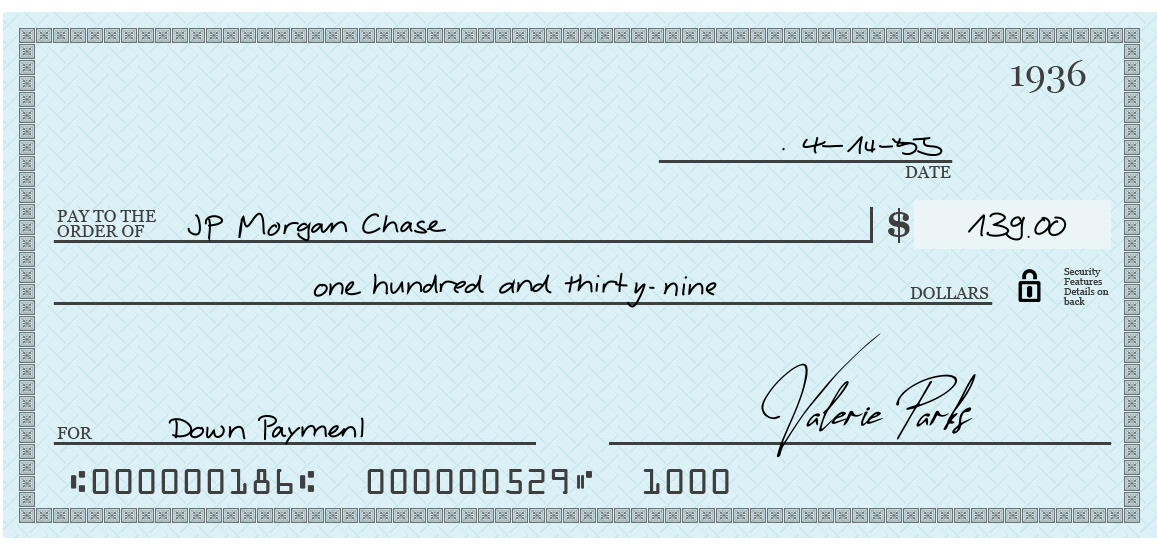 1936
4-14-55
DATE
PAY TO THE
ORDER OF JP Morgan Chase $ 139.00
one hundred and thirty-nine DOLLARS
Security
Features
Details on
back
Valerie Parks
FOR Down Payment
⑆000000186⑆ 000000529⑈ 1000